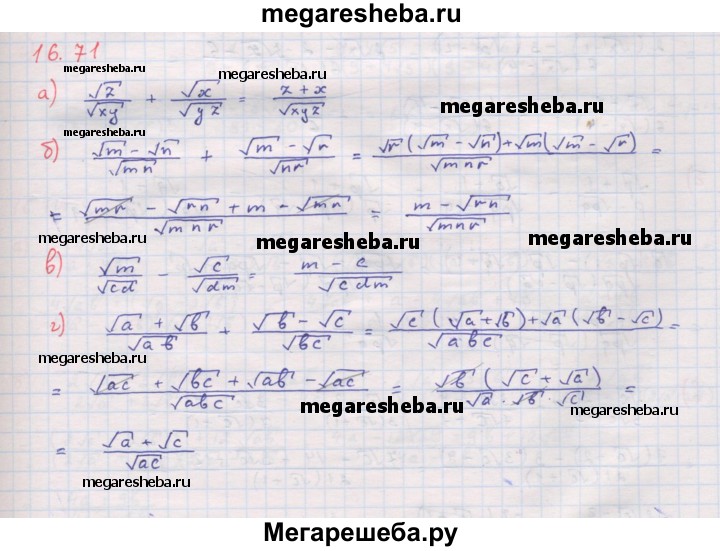 megaresheba.ru
16.71
megaresheba.ru
megaresheba.ru
а) √z/√xy + √x/√yz = z + x/√xyz
megaresheba.ru
megaresheba.ru
б) √m - √n/√mn + √m - √r/√nr = √r(√m - √n) + √m(√m - √r)/√mnr =
= √mr - √rn + m - √mn/√mnr = m - √rn/√mnr
megaresheba.ru
megaresheba.ru
megaresheba.ru
в) √m/√cd - √c/√dm = m - c/√cdm
г) √a + √b/√ab + √b - √c/√bc = √c(√a + √b) + √a(√b - √c)/√abc =
megaresheba.ru
= √ac + √bc + √ab - √ac/√abc = √b(√c + √a)/√a · √b · √c =
megaresheba.ru
megaresheba.ru
= √a + √c/√ac
megaresheba.ru
megaresheba.ru
Мегарешеба.ру